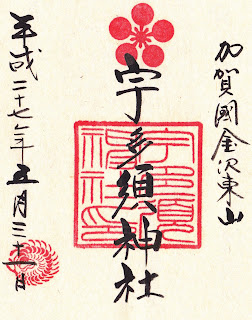 加賀國金沢東山
宇多須神社
宇多須
神社印
平成二十七年五月三十一日